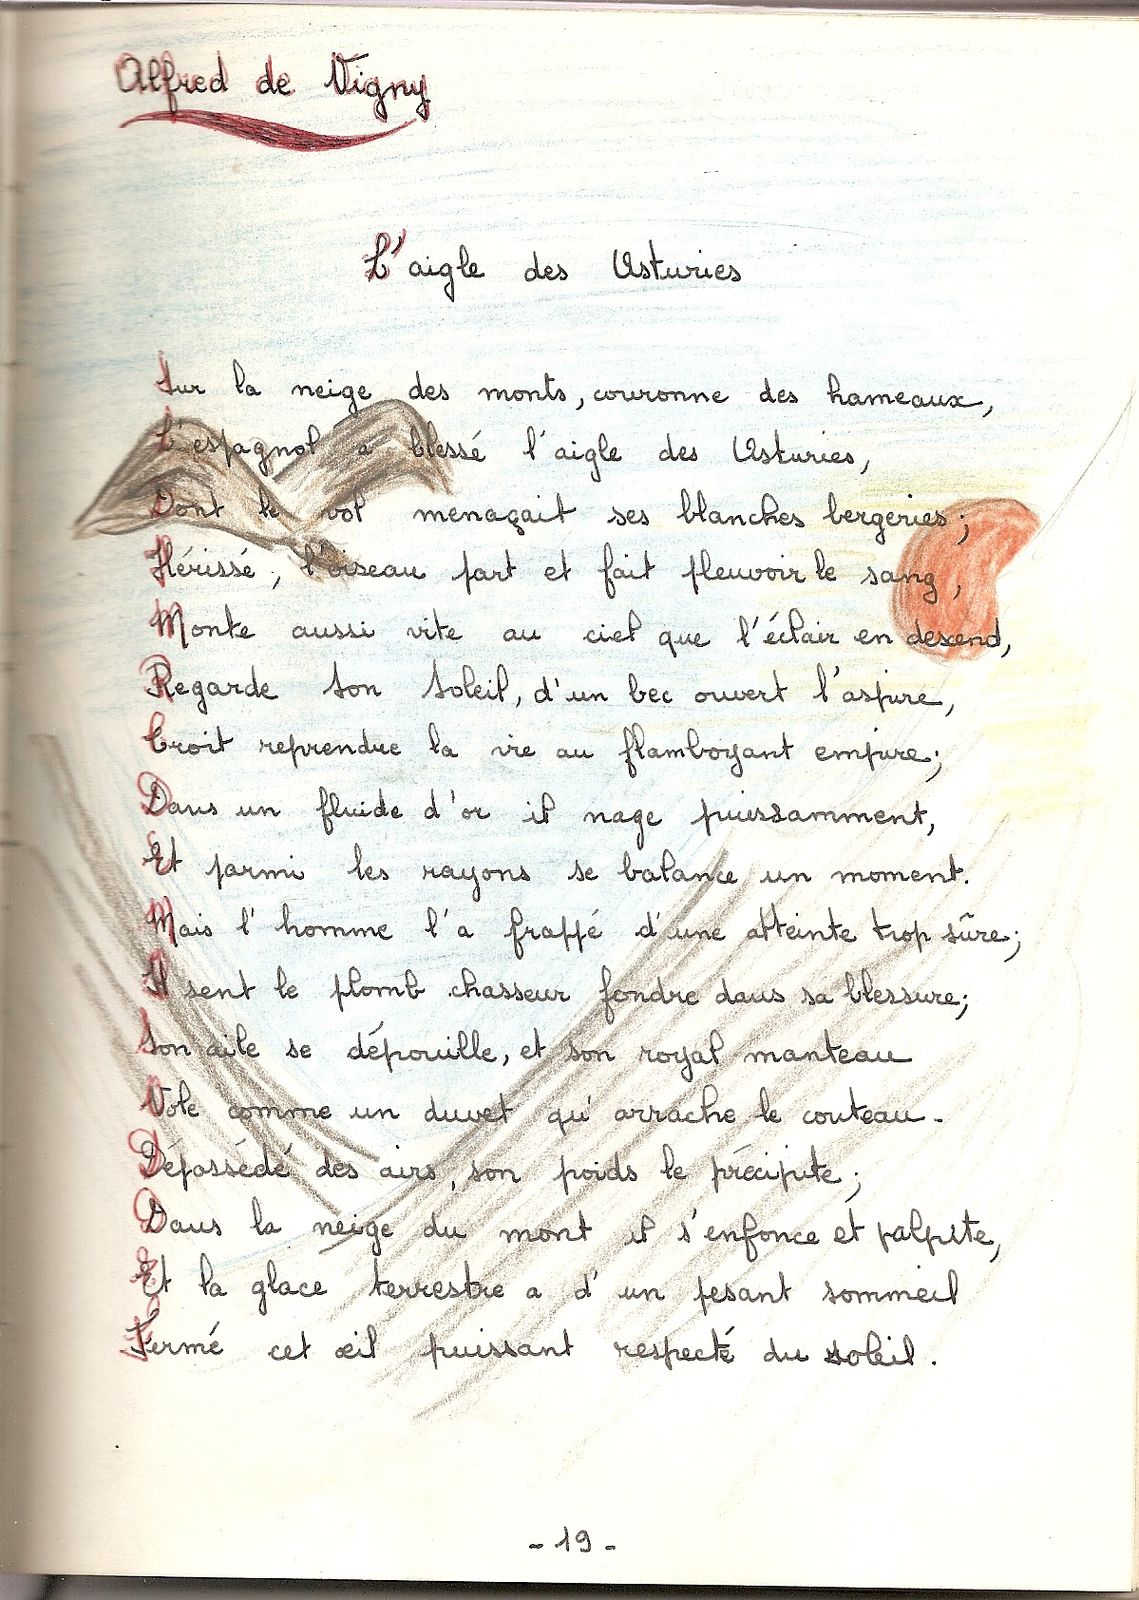 Alfred de Vigny
L'aigle des Asturies
Sur la neige des monts, couronne des hameaux,
L'espagnol a blessé l'aigle des Asturies,
Dont le vol menaçait ses blanches bergeries ;
Hérissé, l'oiseau part et fait pleuvoir le sang,
Monte aussi vite au ciel que l'éclair en descend,
Regarde son soleil, d'un bec ouvert l'aspire,
Croit reprendre la vie au flamboyant empire ;
Dans un fluide d'or il nage puissamment,
Et parmi les rayons se balance un moment.
Mais l'homme l'a frappé d'une atteinte trop sûre ;
Il sent le plomb chasseur fondre dans sa blessure ;
Son aile se dépouille, et son royal manteau
Vole comme un duvet qu'arrache le couteau.
Dépossédé des airs, son poids le précipite ;
Dans la neige du mont il s'enfonce et palpite,
Et la glace terrestre a d'un pesant sommeil
Fermé cet œil puissant respecté du soleil.
- 19 -